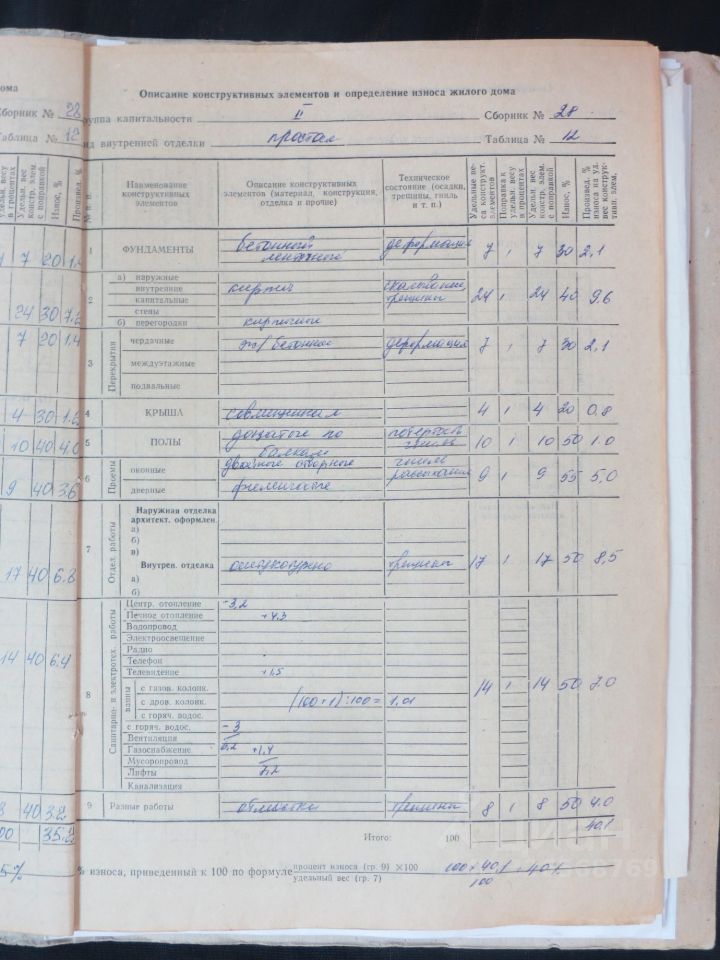 Описание конструктивных элементов и определение износа жилого дома
ома
Группа капитальности II Сборник № 28
Сборник № 28
Вид внутренней отделки простая Таблица № 12
Таблица № 12
№ п. п.
Наименование конструктивных элементов
Описание конструктивных элементов (материал, конструкция, отделка и прочие)
Техническое состояние (осадки, трещины, гниль и т. п.)
Удельные веса конструкт. элементов
Поправка к удельн. весу в процентах
Удельн. вес констр. элем. с поправкой
Износ, %
Произвед. % износа на уд. вес конструктивн. элем.
1 ФУНДАМЕНТЫ бетонный ленточный деформация 7 1 7 30 2,1
2 а) наружные
внутренние кирпич
капитальные трещины 24 1 24 40 9.6
стены
б) перегородки кирпичные
3 Перекрытия
чердачные ж/бетонное деформация 7 1 7 30 2,1
междуэтажные
подвальные
4 КРЫША совмещенная 4 1 4 20 0,8
5 ПОЛЫ дощатые по балкам потертость 10 1 10 50 1.0
6 Проемы
оконные двойные створные 9 1 9 55 5,0
дверные филенчатые
7 Отдел. работы
Наружная отделка
архитект. оформлен.
а)
б)
в)
Внутрен. отделка оштукатурено трещины 17 1 17 50 8,5
а)
б)
8 Санитарно- и электротех. работы
Центр. отопление -3,2
Печное отопление +4,3
Водопровод
Электроосвещение
Радио
Телефон
Телевидение +1,5
ванны
с газов. колонк.
с дров. колонк. (100+1):100= 1,01 14 1 14 50 7.0
с горяч. водос.
с горяч. водос. -3
Вентиляция
Газоснабжение +1,4
Мусоропровод
Лифты 7,2
Канализация
9 Разные работы отмостка трещины 8 1 8 50 4.0
Итого: 100 40,1
% износа, приведенный к 100 по формуле процент износа (гр. 9) ×100
удельный вес (гр. 7)
100 × 40,1
100
7 20 1.4
24 30 7.2
7 20 1.4
4 30 1.2
10 40 4.0
9 40 3.6
17 40 6.8
14 40 6.4
8 40 3.2
35.2
5%